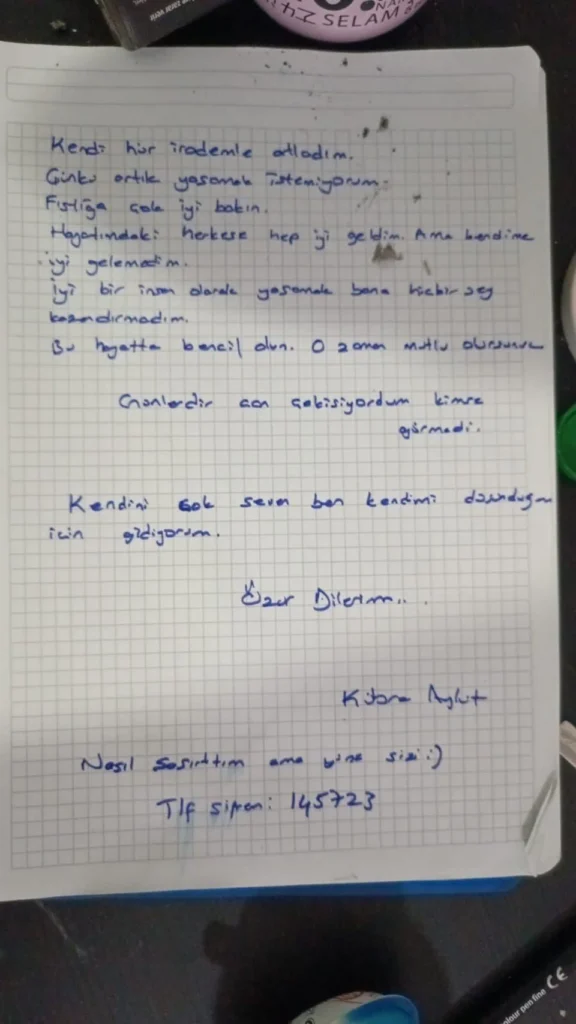 SELAM
Kendi hür irademle atladım.
Çünkü artık yaşamak istemiyorum.
Fıstığa çok iyi bakın.
Hayatındaki herkese hep iyi geldim. Ama kendime
iyi gelemedim.
İyi bir insan olarak yaşamak bana hiçbir şey
kazandırmadım.
Bu hayatta bencil olun. O zaman mutlu olursunuz
Günlerdir can çekişiyordum kimse
görmedi.
Kendini çok seven ben kendimi düşündüğüm
için gidiyorum.
Özür Dilerim...
Kübra Aykut
Nasıl şaşırttım ama yine sizi :)
Tlf şifrem: 145723
colour pen fine CE